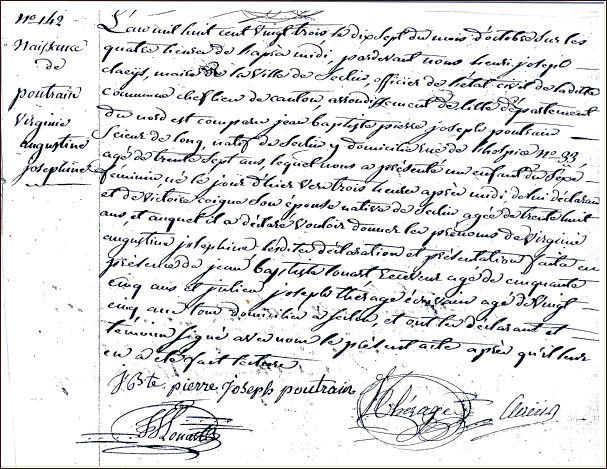 No. 142
Naissance
de
poutrain
Virginie
augustine
josephine
L'an mil huit cent vingt trois le dix sept du mois d'octobre sur les
quatre heures de l'après midi, pardevant nous henri joseph
maire de la Ville de Seclin, officier de l'état civil de ladite
commune chef lieu de canton, arrondissement de lille département
du nord est comparu jean baptiste pierre joseph poutrain
Scieur de long, natif de Seclin y domicilié rue de l'hospice no. 33,
agé de trente Sept ans, lequel nous a présenté un enfant du Sexe
féminin, né le jour d'hier vers trois heures après midi, de lui déclarant
et de Victoire Son épouse native de Seclin agée de trente huit
ans, et auquel il a déclaré vouloir donner les prénoms de Virginie
augustine josephine lesdites déclaration et présentation faite en
présence de jean baptiste Louart agé de cinquante
cinq ans et julien joseph thérage écrivain agé de vingt
cinq ans tous domiciliés à Seclin, et ont les déclarant et
témoins signé avec nous le présent acte après qu'il leur
en a été fait lecture
JBte pierre Joseph poutrain
JB Louart
Thérage